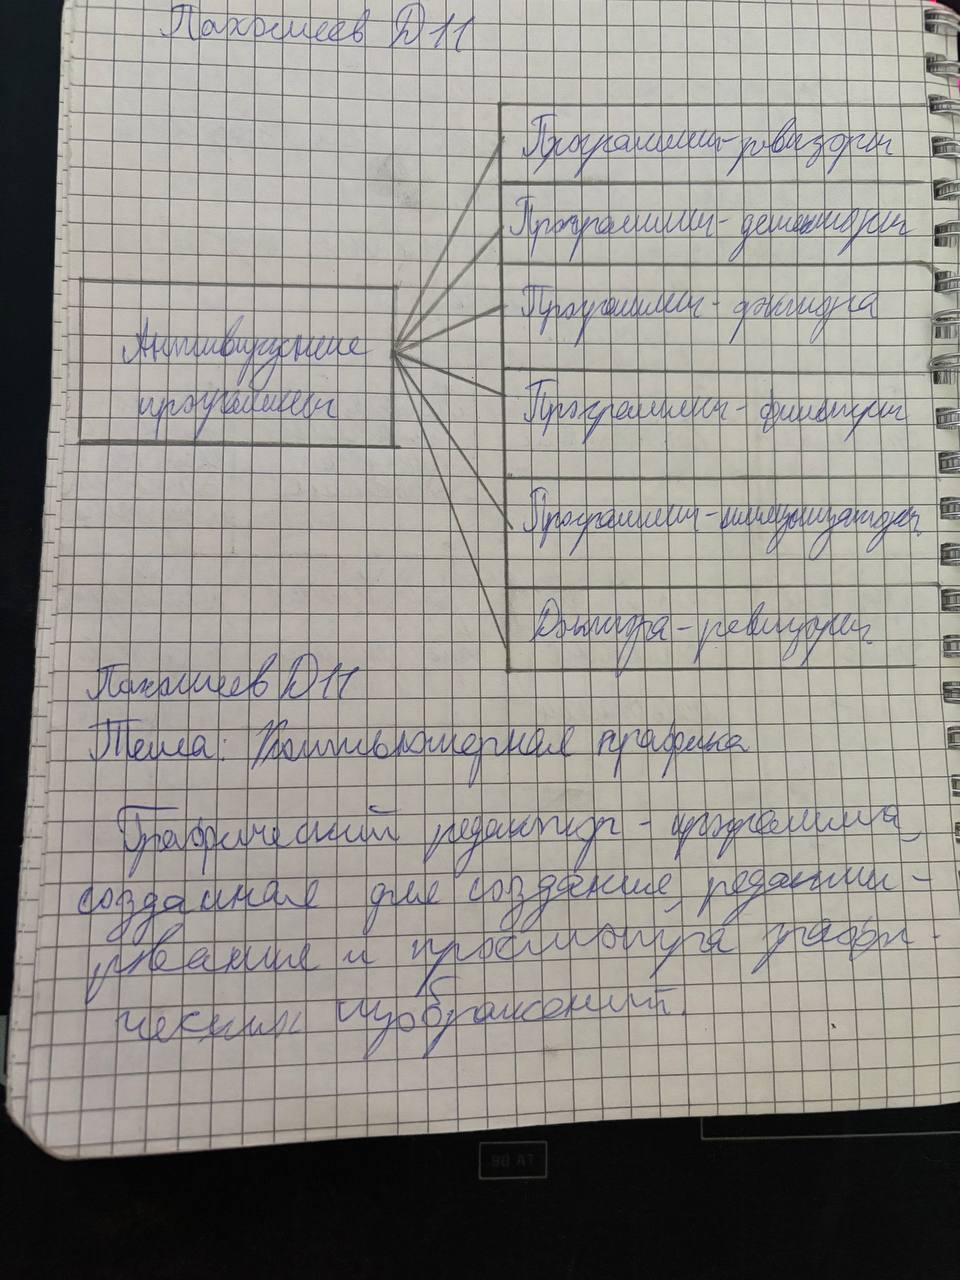 Пахомеев D11
Программы-ревизоры
Программы-детекторы
Программы-доктора
Антивирусные
программы
Программы-фильтры
Программы-иммунизаторы
Доктора-ревизоры
Пахомеев D11
Тема: Компьютерная графика
Графический редактор - программа,
созданная для создание, редакти-
рования и просмотра графи-
ческих изображений.